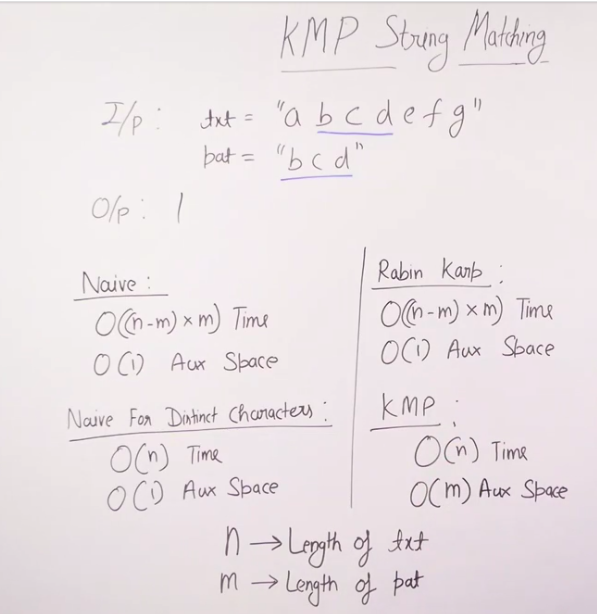 KMP String Matching
I/p : txt = "a b c d e f g"
pat = "b c d"
O/p : 1
Naive :
O((n-m) × m) Time
O(1) Aux Space
Naive For Distinct Characters :
O(n) Time
O(1) Aux Space
Rabin Karp :
O((n-m) × m) Time
O(1) Aux Space
KMP :
O(n) Time
O(m) Aux Space
n → Length of txt
m → Length of pat